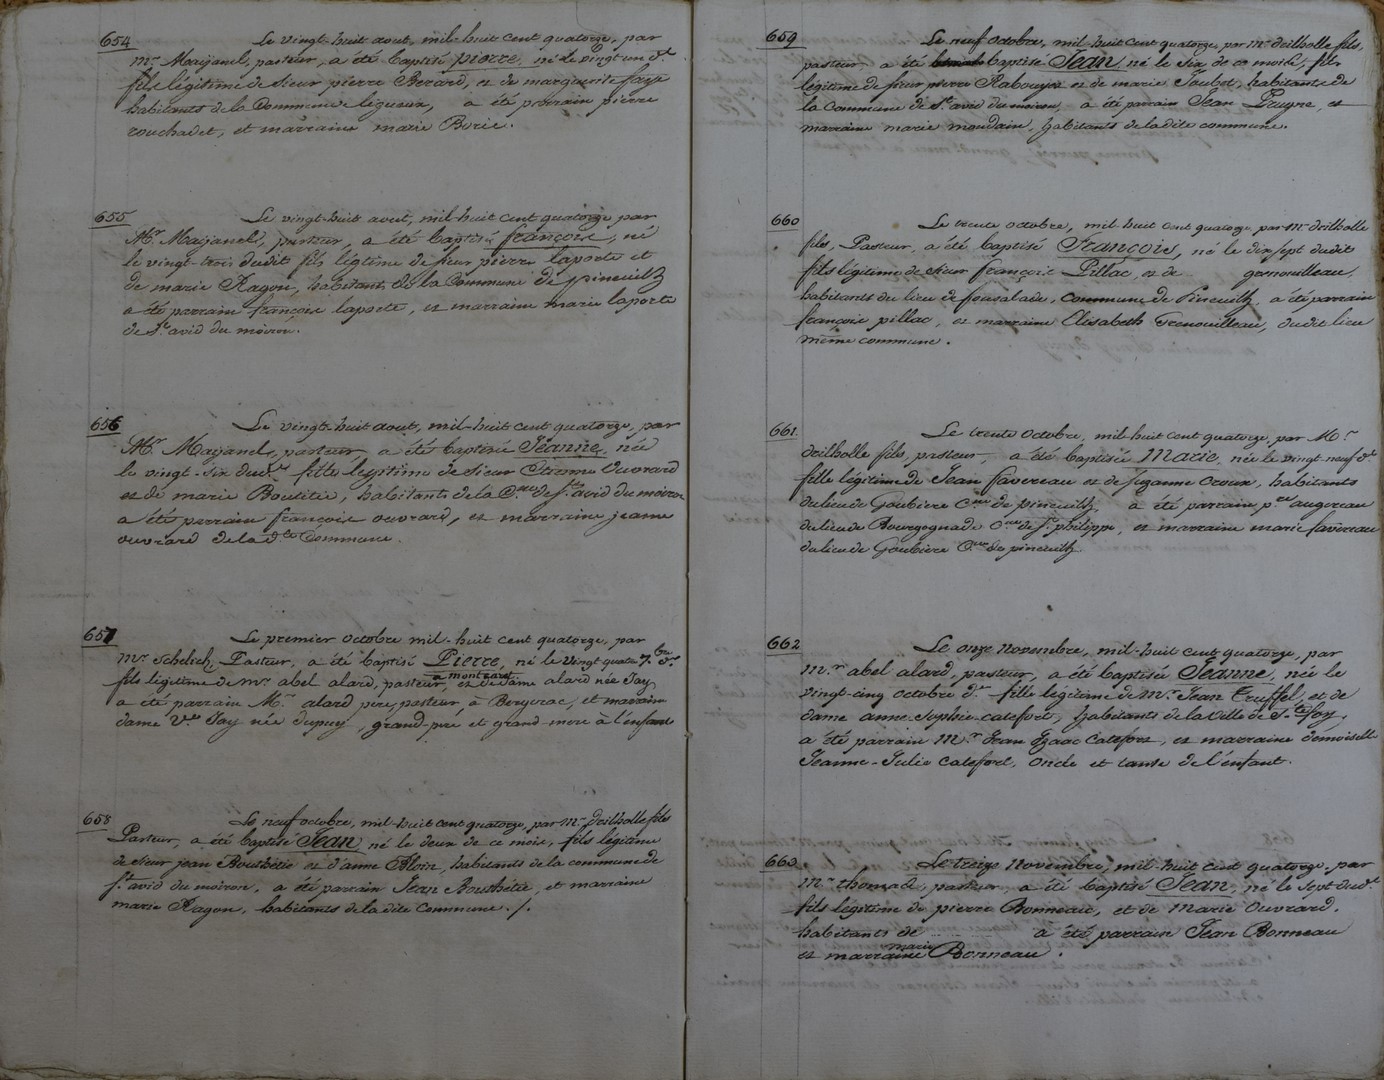 654
Le vingt-huit aout, mil-huit cent quatorze, par
mr. Marjanel, pasteur, a été baptisé pierre, né le vingt un dt.
fils légitime de Sieur pierre Berard, et de marguerite faye
habitants de la Commune de ligueux, a été parrain pierre
rouchadet, et marraine marie Borie.
655
Le vingt-huit aout, mil-huit cent quatorze, par
Mr. Marjanel, pasteur, a été baptisé françois, né
le vingt-trois dudit fils légitime de Sieur pierre laporte et
de marie Ragon, habitants de la Commune de pineuilh
a été parrain françois laporte, et marraine marie laporte
de St. avid du moiron.
656
Le vingt-huit aout, mil-huit cent quatorze, par
Mr. Marjanel, pasteur, a été baptisée Jeanne, née
le vingt-six dudt. fille legitime de Sieur Etienne Ouvrard
et de marie Boutitie, habitants de la Cne. de St. avid du moiron
a été parrain françois ouvrard, et marraine jeanne
ouvrard de la dte. Commune.
657
Le premier octobre mil-huit cent quatorze, par
mr. Schelich, Pasteur, a été baptisé Pierre, né le vingt quatre 7.bre dr.
fils légitime de mr. abel alard, pasteur, a montcaret et de dame alard née Say,
a été parrain Mr. alard pere, pasteur, a Bergerac, et marraine
dame Ve. Say née dupuy, grand pere et grand mere à l'enfant
658
Le neuf octobre, mil-huit cent quatorze, par mr. deilholle fils
Pasteur, a été baptisé Jean né le deux de ce mois, fils légitime
de Sieur jean Bouthétie et d'anne Bloin, habitants de la commune de
St. avid du moiron, a été parrain Jean Bouthétie, et marraine
marie Ragon, habitants de la dite commune. /.
659
Le neuf octobre, mil-huit cent quatorze, par mr. deilholle fils,
pasteur a été baptisé Jean né le six de ce mois, fils
légitime de Sieur pierre Rabouyer et de marie Jaubet, habitants de
la Commune de St. avid du moiron, a été parrain Jean Gruyre, et
marraine marie moudain, habitants de la dite commune.
660
Le trente octobre, mil-huit cent quatorze par mr. deilholle
fils, Pasteur, a été baptisé François, né le dix sept dudit
fils légitime de Sieur françois Pillac, et de grenouilleau,
habitants du lieu de fonsalade, commune de Pineuilh, a été parrain
françois pillac, et marraine Elisabeth Grenouilleau, dudit lieu
même commune.
661
Le trente octobre, mil-huit cent quatorze, par Mr.
deilholle fils, pasteur, a été baptisée Marie, née le vingt neuf dt.
fille légitime de Jean favereau et de Suzanne Croux, habitants
du lieu de Goubiere Cne. de pineuilh, a été parrain pre. augereau
du lieu de Bourgognade Cne. de St. philippe, et marraine marie favereau
du lieu de Goubiere Cne. de pineuilh.
662
Le onze novembre, mil-huit cent quatorze, par
mr. abel alard, pasteur, a été baptisée Jeanne, née le
vingt-cinq octobre dr. fille légitime de Mr. Jean Truffel, et de
dame anne-Sophie-catefort, habitants de la ville de Ste. foy,
a été parrain Mr. Jean Izaac Catefort, et marraine démoiselle
Jeanne-Julie Catefort, oncle et tante de l'enfant.
663
Le treize novembre, mil-huit cent quatorze, par
mr. thomad pasteur, a été baptisé Jean, né le sept dudt.
fils légitime de pierre Bonneau, et de Marie Ouvrard,
habitants de a été parrain Jean Bonneau
et marraine marie Bonneau.